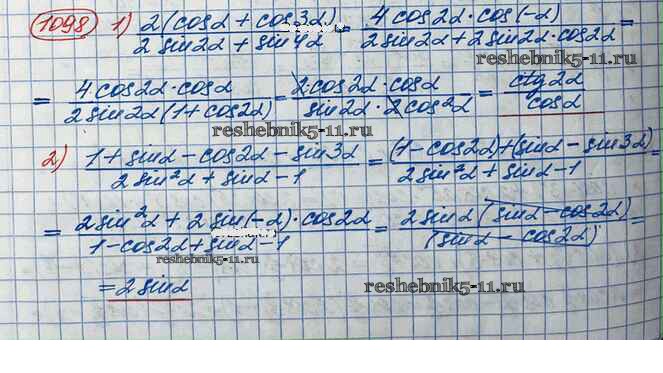 1098 1) 2(cosα + cos3α) / 2 sin2α + sin4α = 4cos2α·cos(-α) / 2sin2α + 2sin2α·cos2α =
reshebnik5-11.ru
= 4cos2α·cosα / 2sin2α(1+cos2α) = 2cos2α·cosα / sin2α·2cos²α = ctg2α / cosα
reshebnik5-11.ru
2) 1+sinα-cos2α-sin3α / 2sin²α+sinα-1 = (1-cos2α)+(sinα-sin3α) / 2sin²α+sinα-1 =
= 2sin²α+2sin(-α)·cos2α / 1-cos2α+sinα-1 = 2sinα(sinα-cos2α) / (sinα-cos2α) =
reshebnik5-11.ru
= 2sinα
reshebnik5-11.ru